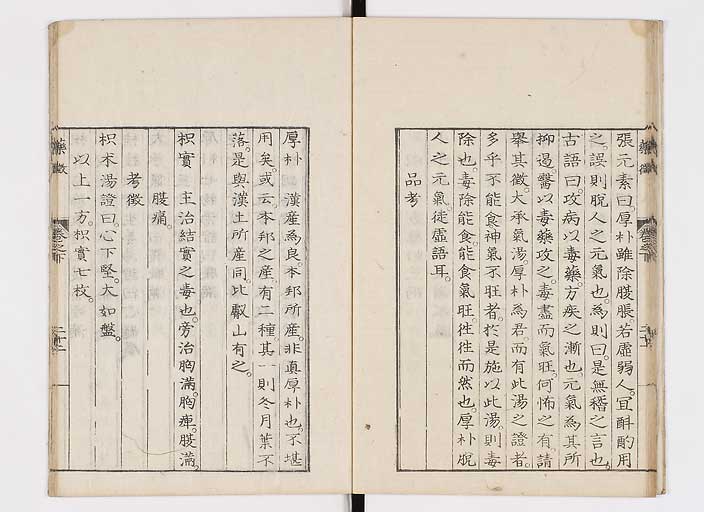 張元素曰。厚朴雖除腹脹。若虛弱人。宜斟酌用
之。誤則脫人之元氣也。爲則曰。是無稽之言也。
古語曰。攻病以毒藥。方疾之漸也。元氣爲其所
抑遏。醫以毒藥攻之。毒盡而氣旺。何怖之有。請
舉其徵。大承氣湯。厚朴爲君。而有此湯之證者。
多乎不能食。神氣不旺者。於是施以此湯。則毒
除也。毒除能食。能食氣旺。往往而然也。厚朴脫
人之元氣。徒虛語耳。
品考
厚朴 漢産爲良。本邦所産。非眞厚朴也。不堪
用矣。或云。本邦之産。有二種。其一則冬月葉不
落。是與漢土所産同。比叡山有之。
枳實 主治結實之毒也。旁治胸滿。胸痺。腹滿。
腹痛。
考徵
枳朮湯證曰。心下堅。大如盤。
以上一方。枳實七枚。
藥徵
卷之下
藥徵
卷之下